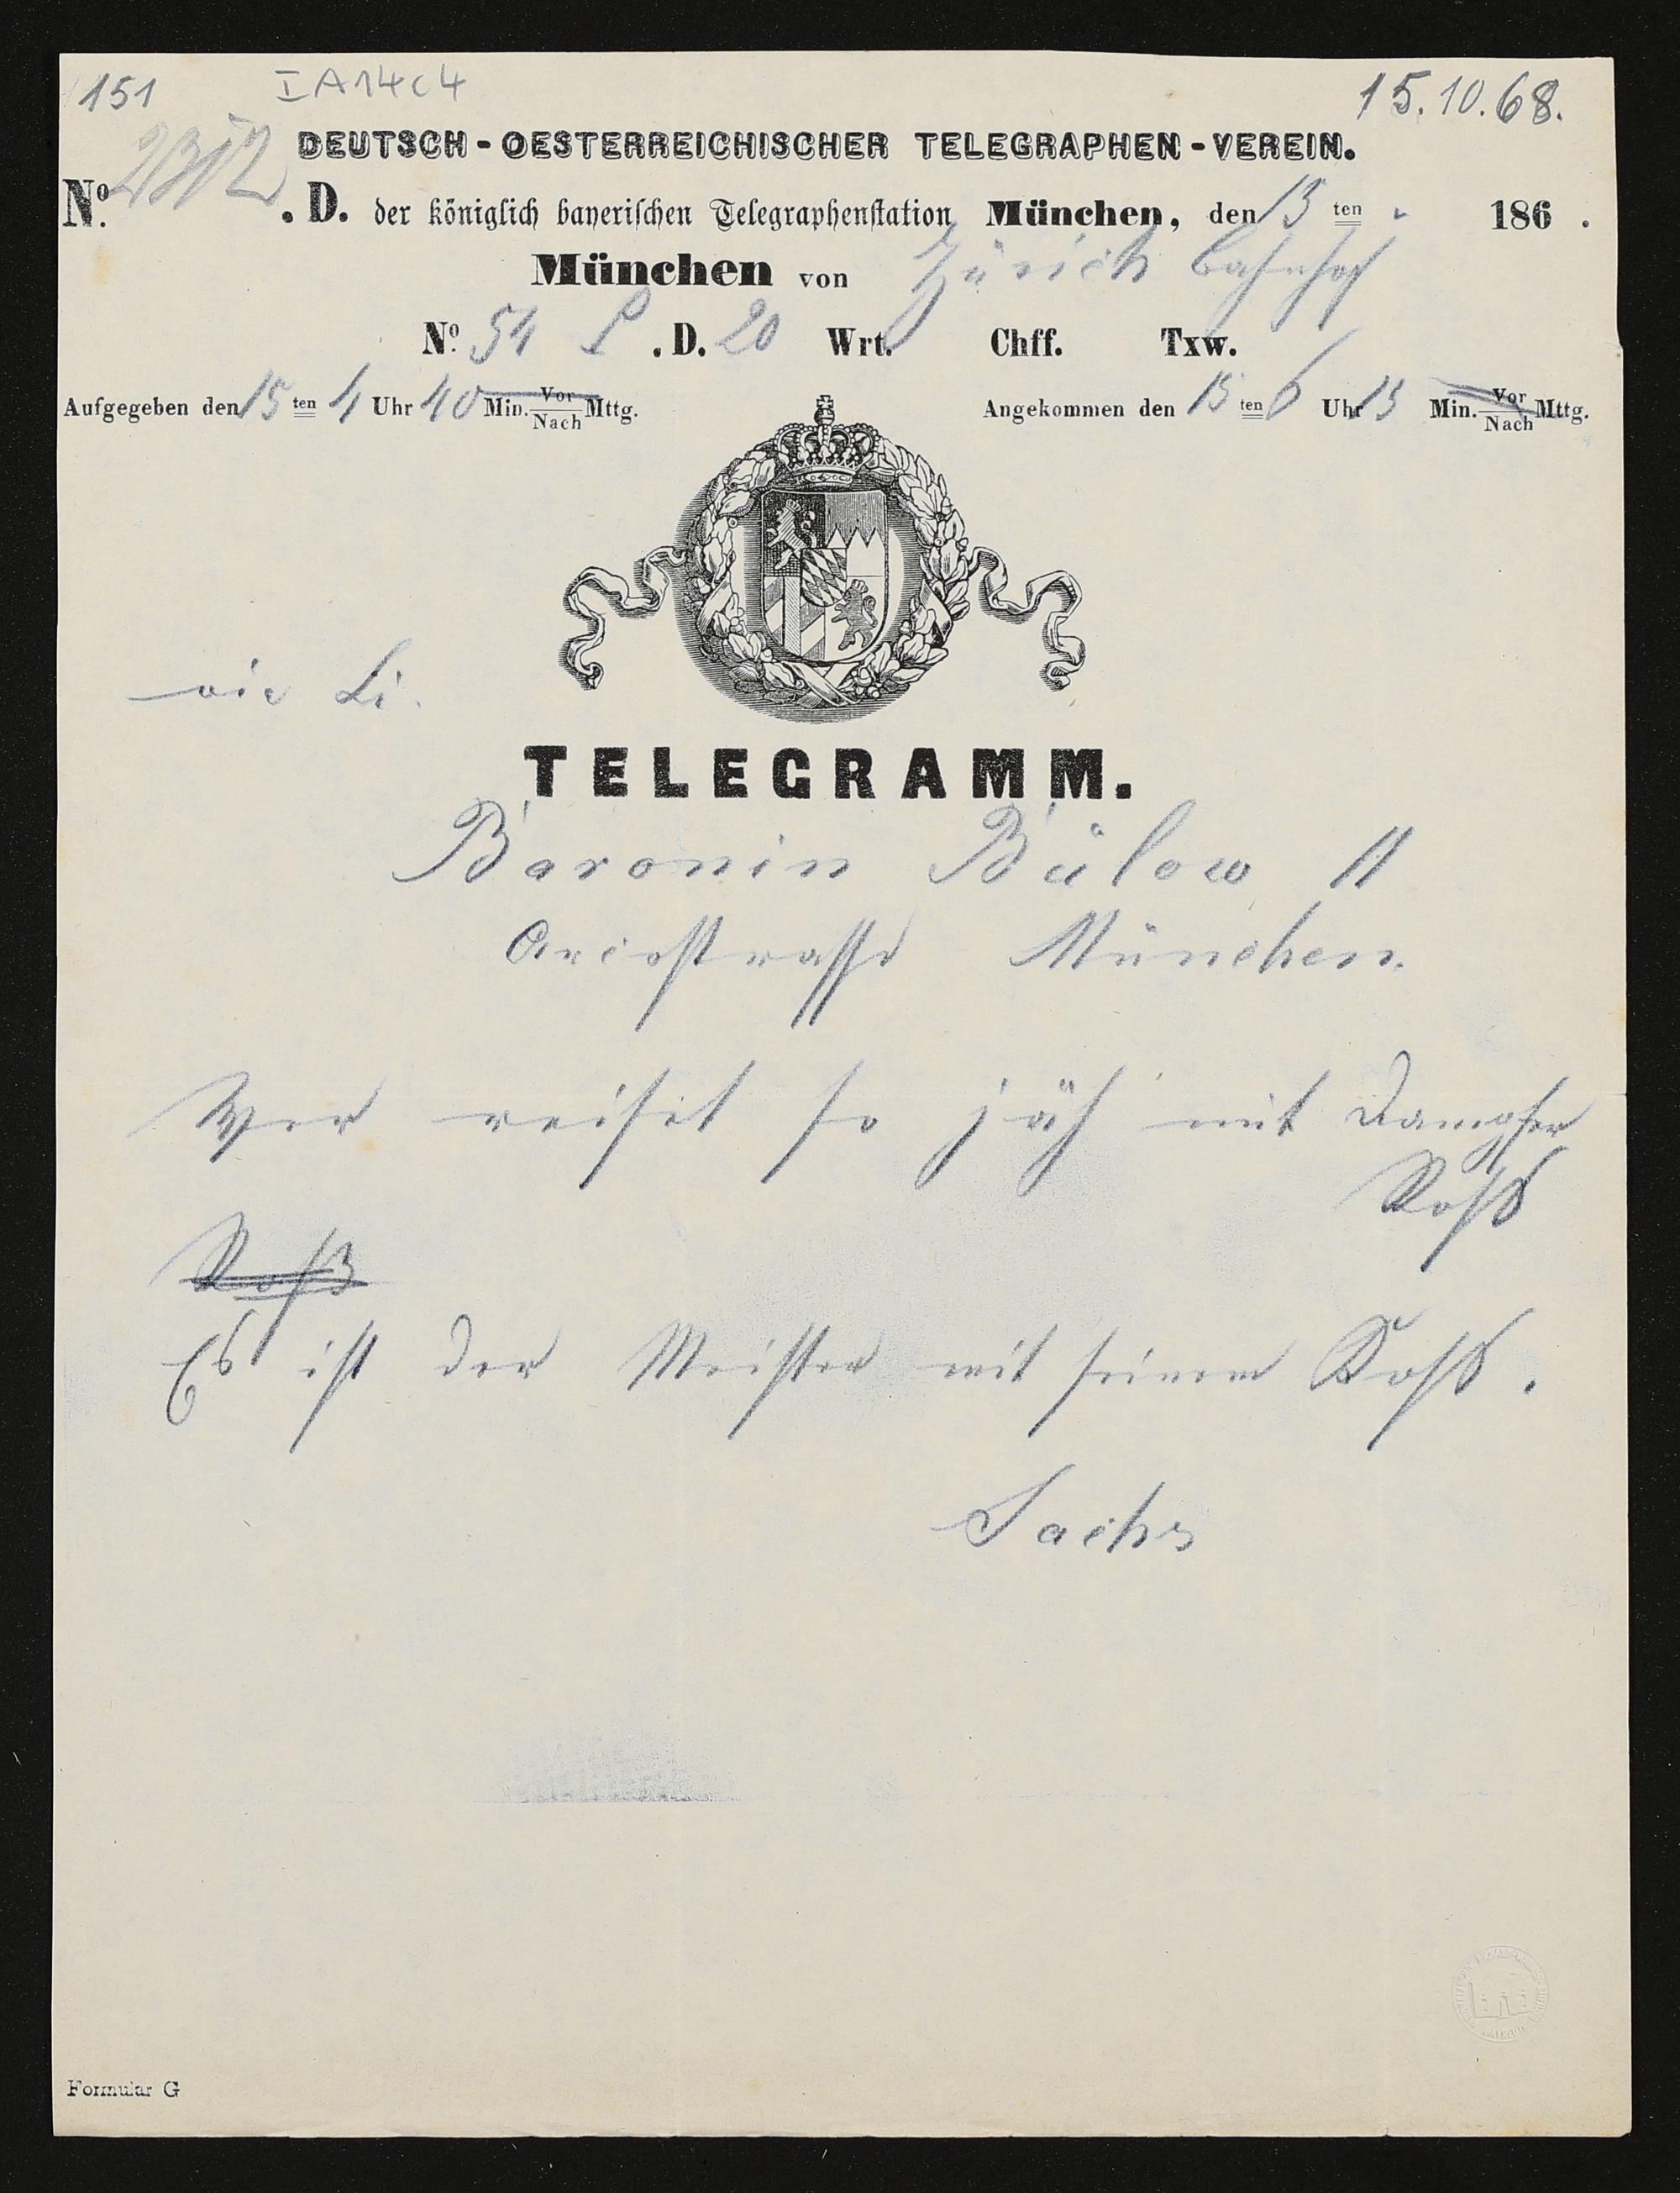 151 I A 14 c 4 15.10.68.
DEUTSCH-OESTERREICHISCHER TELEGRAPHEN-VEREIN.
No. . D. der königlich bayerischen Telegraphenstation München, den 15 ten 186 .
München von Zürich Bahnhof
No. 54 P . D. 20 Wrt. Chff. Txw.
Aufgegeben den 15 ten 4 Uhr 40 Min. Vor Nach Mttg. Angekommen den 15 ten 6 Uhr 15 Min. Vor Nach Mttg.
via Li.
TELEGRAMM.
Baronin Bülow 11
Arcostrasse München.
Wer reiset so jäh mit Dampfer
Roß
Roß
Es ist der Meister mit seinem Koß.
Sachs
Formular G